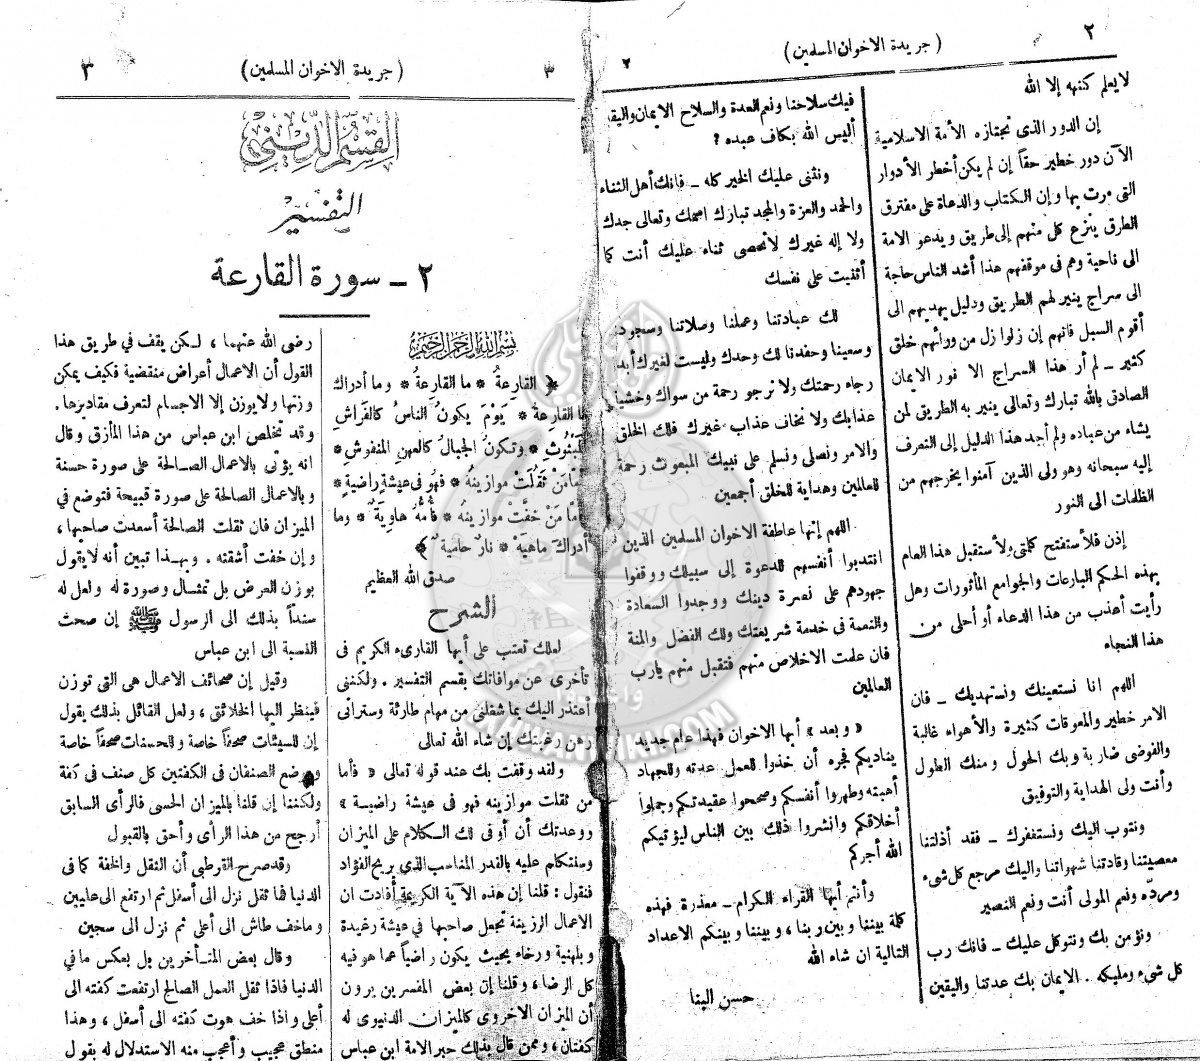 ٢
( جريدة الاخوان المسلمين )
٢
لا يعلم كنهه إلا الله
إن الدور الذى تجتازه الأمة الاسلامية
الآن دور خطير حقاً إن لم يكن أخطر الأدوار
التى مرت بها وإن الكتاب والدعاة على مفترق
الطرق ينزع كل منهم إلى طريق ويدعو الامة
الى ناحية وهم فى موقفهم هذا أشد الناس حاجة
الى سراج ينير لهم الطريق ودليل يهديهم الى
أقوم السبل فانهم إن زلوا زل من ورائهم خلق
كثير ـ لم أر هذا السراج الا نور الايمان
الصادق بالله تبارك وتعالى ينير به الطريق لمن
يشاء من عباده ولم أجد هذا الدليل إلى التعرف
إليه سبحانه وهو ولى الذين آمنوا يخرجهم من
الظلمات الى النور
إذن فلأستفتح كلمتى ولأستقبل هذا العام
بهذه الحكم البارعات والجوامع المأثورات وهل
رأيت أعذب من هذا الدعاء أو أحلى من
هذا النجاء
اللهم انا نستعينك ونستهديك ـ فان
الامر خطير والمعوقات كثيرة والأهواء غالبة
والفوضى ضاربة وبك الحول ومنك الطول
وأنت ولى الهداية والتوفيق
ونتوب اليك ونستغفرك ـ فقد أذلتنا
معصيتنا وقادتنا شهواتنا واليك مرجع كل شىء
ومردّه ونعم المولى أنت ونعم النصير
ونؤمن بك ونتوكل عليك ـ فانك رب
كل شىء ومليكه . الايمان بك عدتنا واليقين
فيك سلاحنا ونعم العدة والسلاح الايمان واليق
أليس الله بكاف عبده ؟
ونثنى عليك الخير كله ـ فانك أهل الثناء
والحمد والعزة والمجد تبارك اسمك وتعالى جدك
ولا إله غيرك لا نحصى ثناء عليك أنت كما
أثنيت على نفسك
لك عبادتنا وعملنا وصلاتنا وسجود
وسعينا وحفدنا لك وحدك وليست لغيرك أبد
رجاء رحمتك ولا نرجو رحمة من سواك وخشية
عذابك ولا نخاف عذاب غيرك فلك الخلق
والامر ونصلى ونسلم على نبيك المبعوث رحمة
للعالمين وهداية للخلق أجمعين
اللهم إنها عاطفة الاخوان المسلمين الذين
انتدبوا أنفسهم للدعوة إلى سبيلك ووقفوا
جهودهم على نصرة دينك ووجدوا السعادة
والنعمة فى خدمة شريعتك ولك الفضل والمنة
فان علمت الاخلاص منهم فتقبل منهم يارب
العالمين
« وبعد » أيها الاخوان فهذا عام جديد
يناديكم فجره أن خذوا للعمل عدته وللجهاد
أهبته وطهروا أنفسكم وصححوا عقيدتكم وجملوا
أخلاقكم وانشروا ذلك بين الناس ليؤتيكم
الله أجركم
وأنتم أيها القراء الكرام ـ معذرة فهذه
كلمة بيننا وبين ربنا ، وبيننا وبينكم الاعداد
التالية ان شاء الله
حسن البنا
٣
( جريدة الاخوان المسلمين )
٣
القسم الدينى
التفسير
٢ ـ سورة القارعة
بسم الله الرحمن الرحيم
﴿ القارعةُ * ما القارعةُ * وما أدراك
ما القارعةُ * يَوْمَ يكونُ الناسُ كالفَراشِ
المبثُوثِ * وتكونُ الجبالُ كالعِهنِ المنفوشِ *
فأمّا مَنْ ثَقُلَتْ موازينُهُ * فهُوَ فى عيشةٍ راضيةٍ *
وأمّا مَنْ خفّتْ موازينُه * فأُمُّهُ هاويةٌ * وما
أدراكَ ماهيَهْ * نارٌ حاميةٌ ﴾
صدق الله العظيم
الشرح
لعلك تعتب على أيها القارىء الكريم فى
تأخرى عن موافاتك بقسم التفسير . ولكننى
أعتذر اليك بما شغلنى من مهام طارئة وسترانى
رهن رغبتك إن شاء الله تعالى
ولقد وقفت بك عند قوله تعالى « فأما
من ثقلت موازينه فهو فى عيشة راضية »
ووعدتك أن أوفى لك الكلام على الميزان
وسنتكلم عليه بالقدر المناسب الذى يريح الفؤاد
فنقول : قلنا إن هذه الآية الكريمة أفادت ان
الاعمال الرزينة تجعل صاحبها فى عيشة رغيدة
وبلهنية ورخاء بحيث يكون راضياً عما هو فيه
كل الرضا ، وقلنا إن بعض المفسرين يرون
أن الميزان الاخروى كالميزان الدنيوى له
كفتان ، وممن قال بذلك حبر الامة ابن عباس
رضى الله عنهما ، لكن يقف فى طريق هذا
القول أن الاعمال أعراض منقضية فكيف يمكن
وزنها ولا يوزن إلا الاجسام لتعرف مقاديرها .
وقد تخلص ابن عباس من هذا المأزق وقال
انه يؤتى بالاعمال الصالحة على صورة حسنة
وبالاعمال الصالحة على صورة قبيحة فتوضع فى
الميزان فان ثقلت الصالحة أسعدت صاحبها ،
وإن خفت أشقته . وبهذا تبين أنه لا يقول
بوزن العرض بل تمثال وصورة له ولعل له
سنداً بذلك الى الرسول ﷺ إن صحت
النسبة الى ابن عباس
وقيل إن صحائف الاعمال هى التى توزن
فينظر اليها الخلائق ، ولعل القائل بذلك يقول
إن للسيئات صحفاً خاصة وللحسنات صحفاً خاصة
ويوضع الصنفان فى الكفتين كل صنف فى كفة
ولكننا إن قلنا بالميزان الحسى فالرأى السابق
أرجح من هذا الرأى وأحق بالقبول
وقد صرح القرطبى أن الثقل والخفة كما فى
الدنيا فما ثقل نزل الى أسفل ثم ارتفع الى عليين
وما خف طاش الى أعلى ثم نزل الى سجين
وقال بعض المتأخرين بل بعكس ما فى
الدنيا فاذا ثقل العمل الصالح ارتفعت كفته الى
أعلى واذا خف هوت كفته الى أسفل ، وهذا
منطق عجيب وأعجب منه الاستدلال له بقول